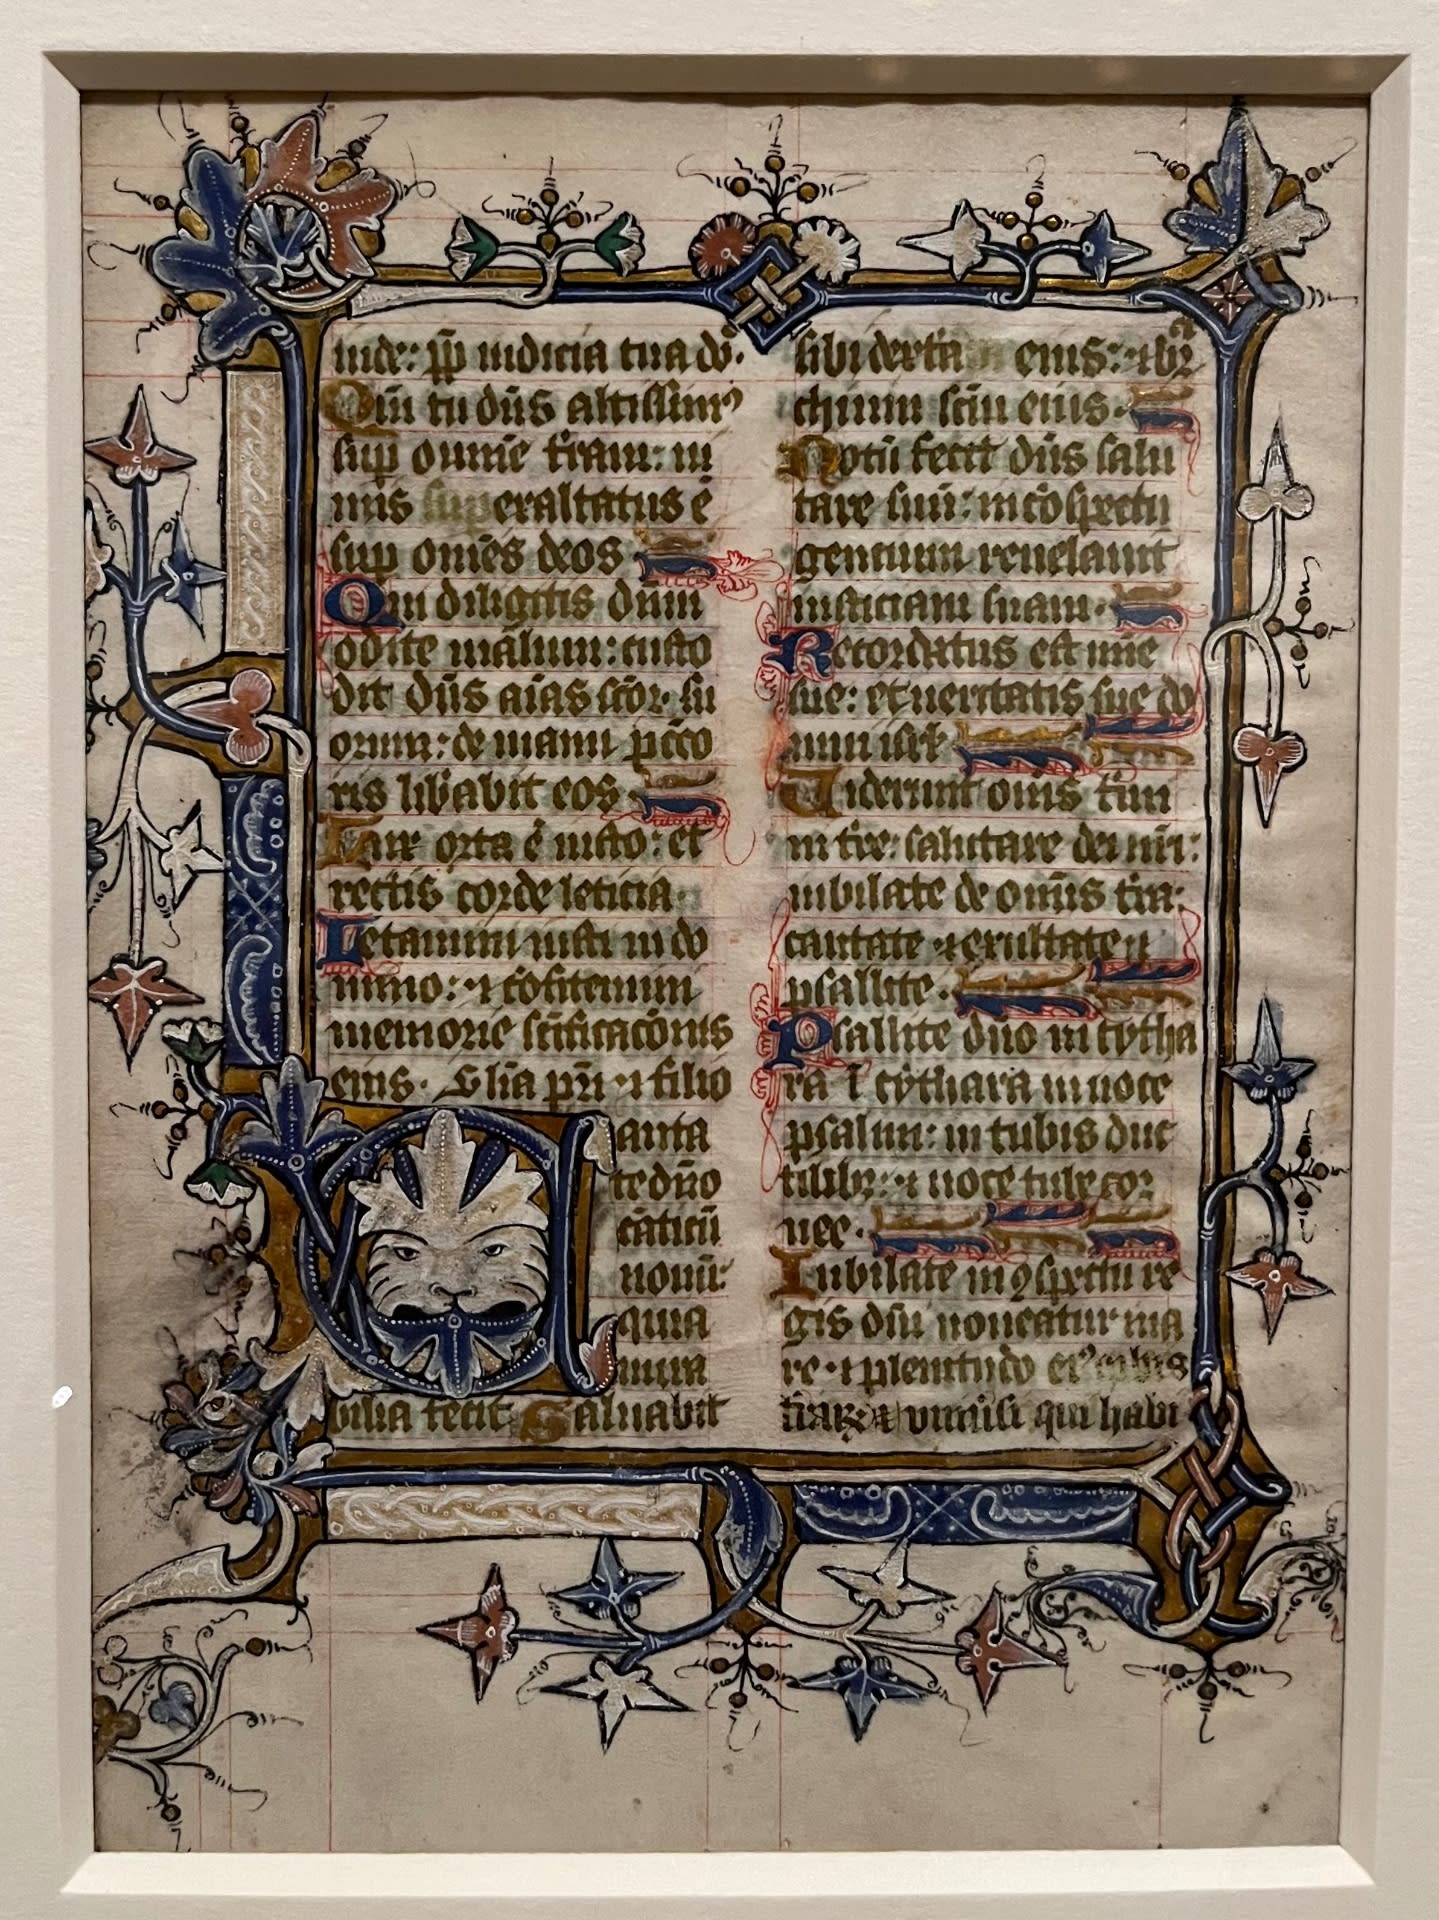 iude: ꝓp̄ iudicia tua dn̄e.
Qm̄ tu dn̄s altissimꝰ
suꝑ omnē t̄ram: ni
mis superaltatus ē
suꝑ om̄es deos
Qui diligitis dnm̄
odite malum: custo
dit dn̄s aīas scōꝝ su
orum: de manu pc̄cō
ris lib̄abit eos
Lux orta ē iusto: et
rectis corde leticia.
Letamini iusti in do
mino: ⁊ cōfitemini
memorie sc̄ificac̄onis
eius. Glīa pr̄i ⁊ filio
Canta
te dn̄o
cāticū
nouū:
quia
mira
bilia fecit Saluabit
sibi dext̄a eius: ⁊ br̄a
chium sc̄m eius.
Notū fecit dn̄s salu
tare suū: in cōspectu
gentium reuelauit
iusticiam suam.
Recordatus est mīe
sue: et ueritatis sue do
mui isrl̄.
Viderunt om̄s t̄mi
ni t̄re: salutare dei nr̄i:
iubilate deo om̄is t̄ra:
cantate ⁊ exultate ⁊
psallite.
Psallite dn̄o in cytha
ra ī cythara ⁊ uoce
psalmi: in tubis duc
tilibꝫ: ⁊ uoce tube cor
nee.
Iubilate in ꝯspectu re
gis dn̄i moueatur ma
re ⁊ plenitudo eiꝰ orbis
t̄raꝝ ⁊ uniūsi qui habi